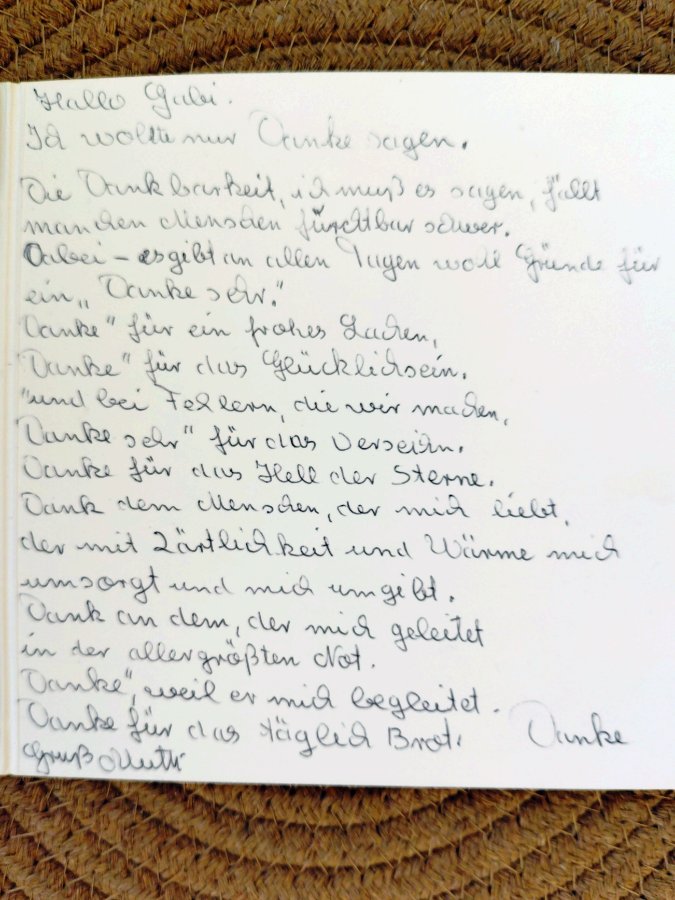 Hallo Gabi.
Ich wollte nur Danke sagen.
Die Dankbarkeit, ich muß es sagen, fällt
manchen Menschen furchtbar schwer.
Dabei - es gibt an allen Tagen wohl Gründe für
ein „Danke sehr."
Danke" für ein frohes Lachen,
"Danke" für das Glücklichsein.
"und bei Fehlern, die wir machen,
"Danke sehr" für das Verzeihn.
Danke für das Hell der Sterne.
Dank dem Menschen, der mich liebt,
der mit Zärtlichkeit und Wärme mich
umsorgt und mich umgibt.
Dank an dem, der mich geleitet
in der allergrößten Not.
"Danke", weil er mich begleitet.
Danke für das täglich Brot. Danke
Gruß Mutti